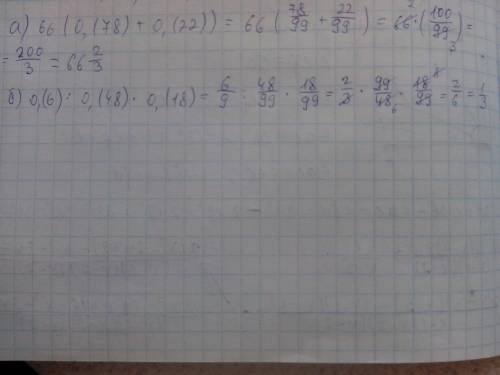 а) 66 (0,(78) + 0,(22)) = 66 (78/99 + 22/99) = 66² · (100/99 ₃) =
= 200/3 = 66 2/3
б) 0,(6) : 0,(48) · 0,(18) = 6/9 : 48/99 · 18/99 = 2/3 · 99/48 ₆ · 18/99 = 2/6 = 1/3